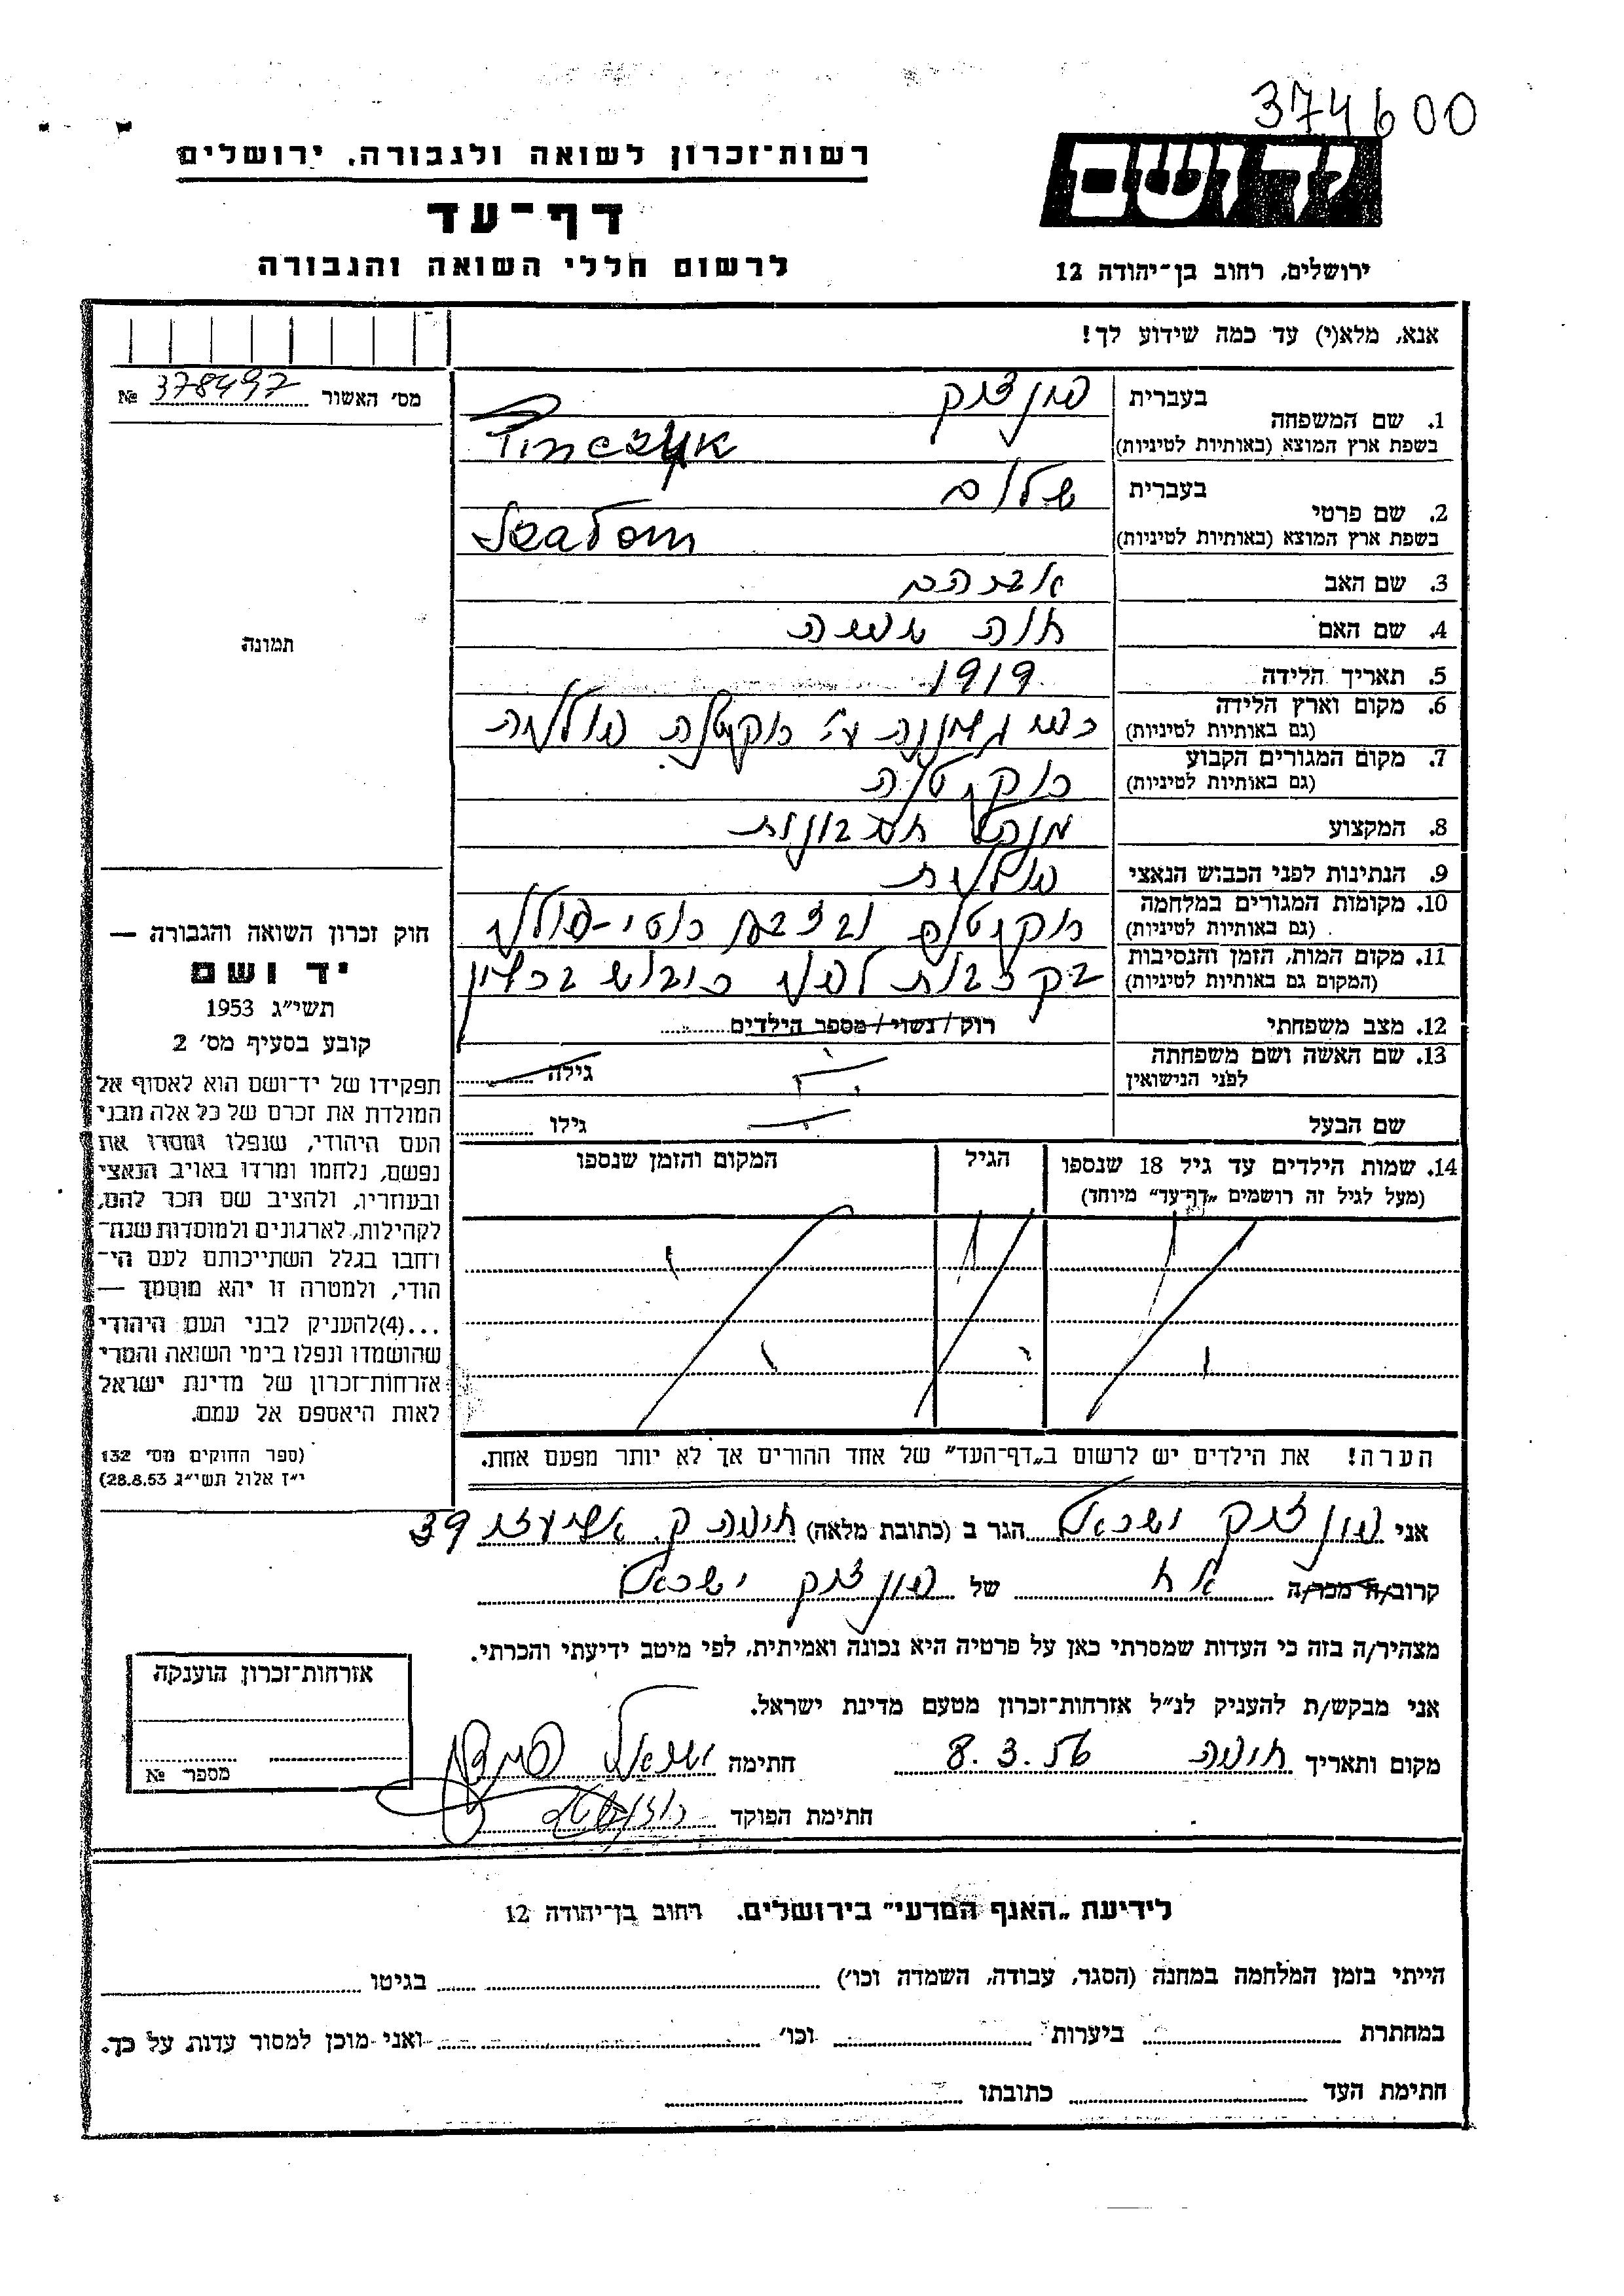 374600
רשות־זכרון לשואה ולגבורה. ירושלים
יד ושם
דף־עד
לרשום חללי השואה והגבורה
ירושלים, רחוב בן־יהודה 12
אנא, מלא(י) עד כמה שידוע לך!
מס׳ האשור № 378497
1. שם המשפחה
בעברית פינצ׳וק
בשפת ארץ המוצא (באותיות לטיניות) Pinczuk
2. שם פרטי
בעברית שלום
בשפת ארץ המוצא (באותיות לטיניות) Szalom
3. שם האב אברהם
4. שם האם חוה
5. תאריך הלידה 1919
6. מקום וארץ הלידה (גם באותיות לטיניות) כפר ע״י רוקיטנה
7. מקום המגורים הקבוע (גם באותיות לטיניות) רוקיטנה
8. המקצוע מנהל חשבונות
9. הנתינות לפני הכבוש הנאצי פולנית
10. מקומות המגורים במלחמה (גם באותיות לטיניות) רוקיטנה
11. מקום המות, הזמן והנסיבות (המקום גם באותיות לטיניות) בקרבות לפני כיבוש ברלין
12. מצב משפחתי רוק/נשוי/מספר הילדים
13. שם האשה ושם משפחתה לפני הנישואין גילה
שם הבעל גילו
תמונה
חוק זכרון השואה והגבורה —
יד ושם
תשי״ג 1953
קובע בסעיף מס׳ 2
תפקידו של יד־ושם הוא לאסוף אל
המולדת את זכרם של כל אלה מבני
העם היהודי, שנפלו ומסרו את
נפשם, נלחמו ומרדו באויב הנאצי
ובעוזריו, ולהציב שם וזכר להם,
לקהילות, לארגונים ולמוסדות שנח־
רבו בגלל השתייכותם לעם הי־
הודי, ולמטרה זו יהא מוסמך —
...(4)להעניק לבני העם היהודי
שהושמדו ונפלו בימי השואה והמרי
אזרחות־זכרון של מדינת ישראל
לאות היאספם אל עמם.
(ספר החוקים מס׳ 132
י״ז אלול תשי״ג 28.8.53)
14. שמות הילדים עד גיל 18 שנספו
(מעל לגיל זה רושמים „דף־עד״ מיוחד)
הגיל
המקום והזמן שנספו
הערה! את הילדים יש לרשום ב„דף־העד״ של אחד ההורים אך לא יותר מפעם אחת.
אני פינצ׳וק ישראל הגר ב (כתובת מלאה) חיפה ק. אליעזר 39
קרוב/ה מכר/ה אח של פינצ׳וק ישראל
מצהיר/ה בזה כי העדות שמסרתי כאן על פרטיה היא נכונה ואמיתית, לפי מיטב ידיעתי והכרתי.
אני מבקש/ת להעניק לנ״ל אזרחות־זכרון מטעם מדינת ישראל.
מקום ותאריך חיפה 8.3.56 חתימה ישראל
חתימת הפוקד
אזרחות־זכרון הוענקה
מספר №
לידיעת „האגף המדעי״ בירושלים. רחוב בן־יהודה 12
הייתי בזמן המלחמה במחנה (הסגר, עבודה, השמדה וכו׳) בגיטו
במחתרת ביערות וכו׳ ואני מוכן למסור עדות על כך.
חתימת העד כתובתו